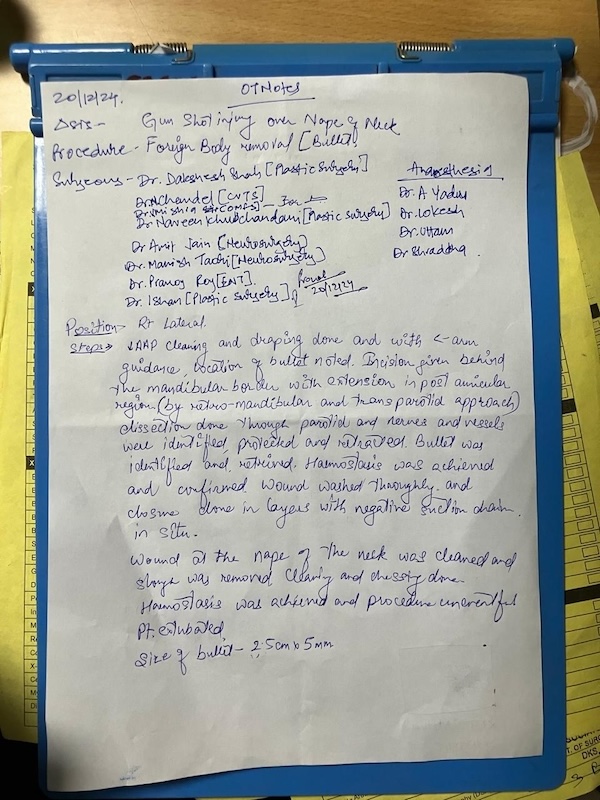 OT Notes
20/12/24.
Δsis - Gun Shot injury over Nape of Neck
Procedure - Foreign Body removal [Bullet]
Surgeons - Dr. Dakshesh Shah [Plastic Surgery]
Dr. N Chandel [CVTS]
Dr. Naveen Khubchandani [Plastic Surgery]
Dr Amit Jain [Neurosurgery]
Dr. Manish Tadri [Neurosurgery]
Dr. Pranoy Roy [ENT].
Dr. Ishan [Plastic Surgery]
20/12/24
Anaesthesia
Dr. A Yadav
Dr. Lokesh
Dr. Uttam
Dr Shraddha.
Position - Rt Lateral.
Steps → AAP cleaning and draping done and with C-arm
guidance location of bullet noted. Incision given behind
the mandibular border with extension in post auricular
region (by retro-mandibular and trans parotid approach)
dissection done through parotid and nerves and vessels
were identified, protected and retracted. Bullet was
identified and retrived. Haemostasis was achieved
and confirmed. Wound washed throughly and
closure done in layers with negative suction drain
in situ.
Wound at the nape of the neck was cleaned and
slough was removed cleanly and dressing done
Haemostasis was achieved and procedure uneventful
Pt. extubated
Size of bullet - 2.5cm x 5mm
T. OF SURG
DKS,